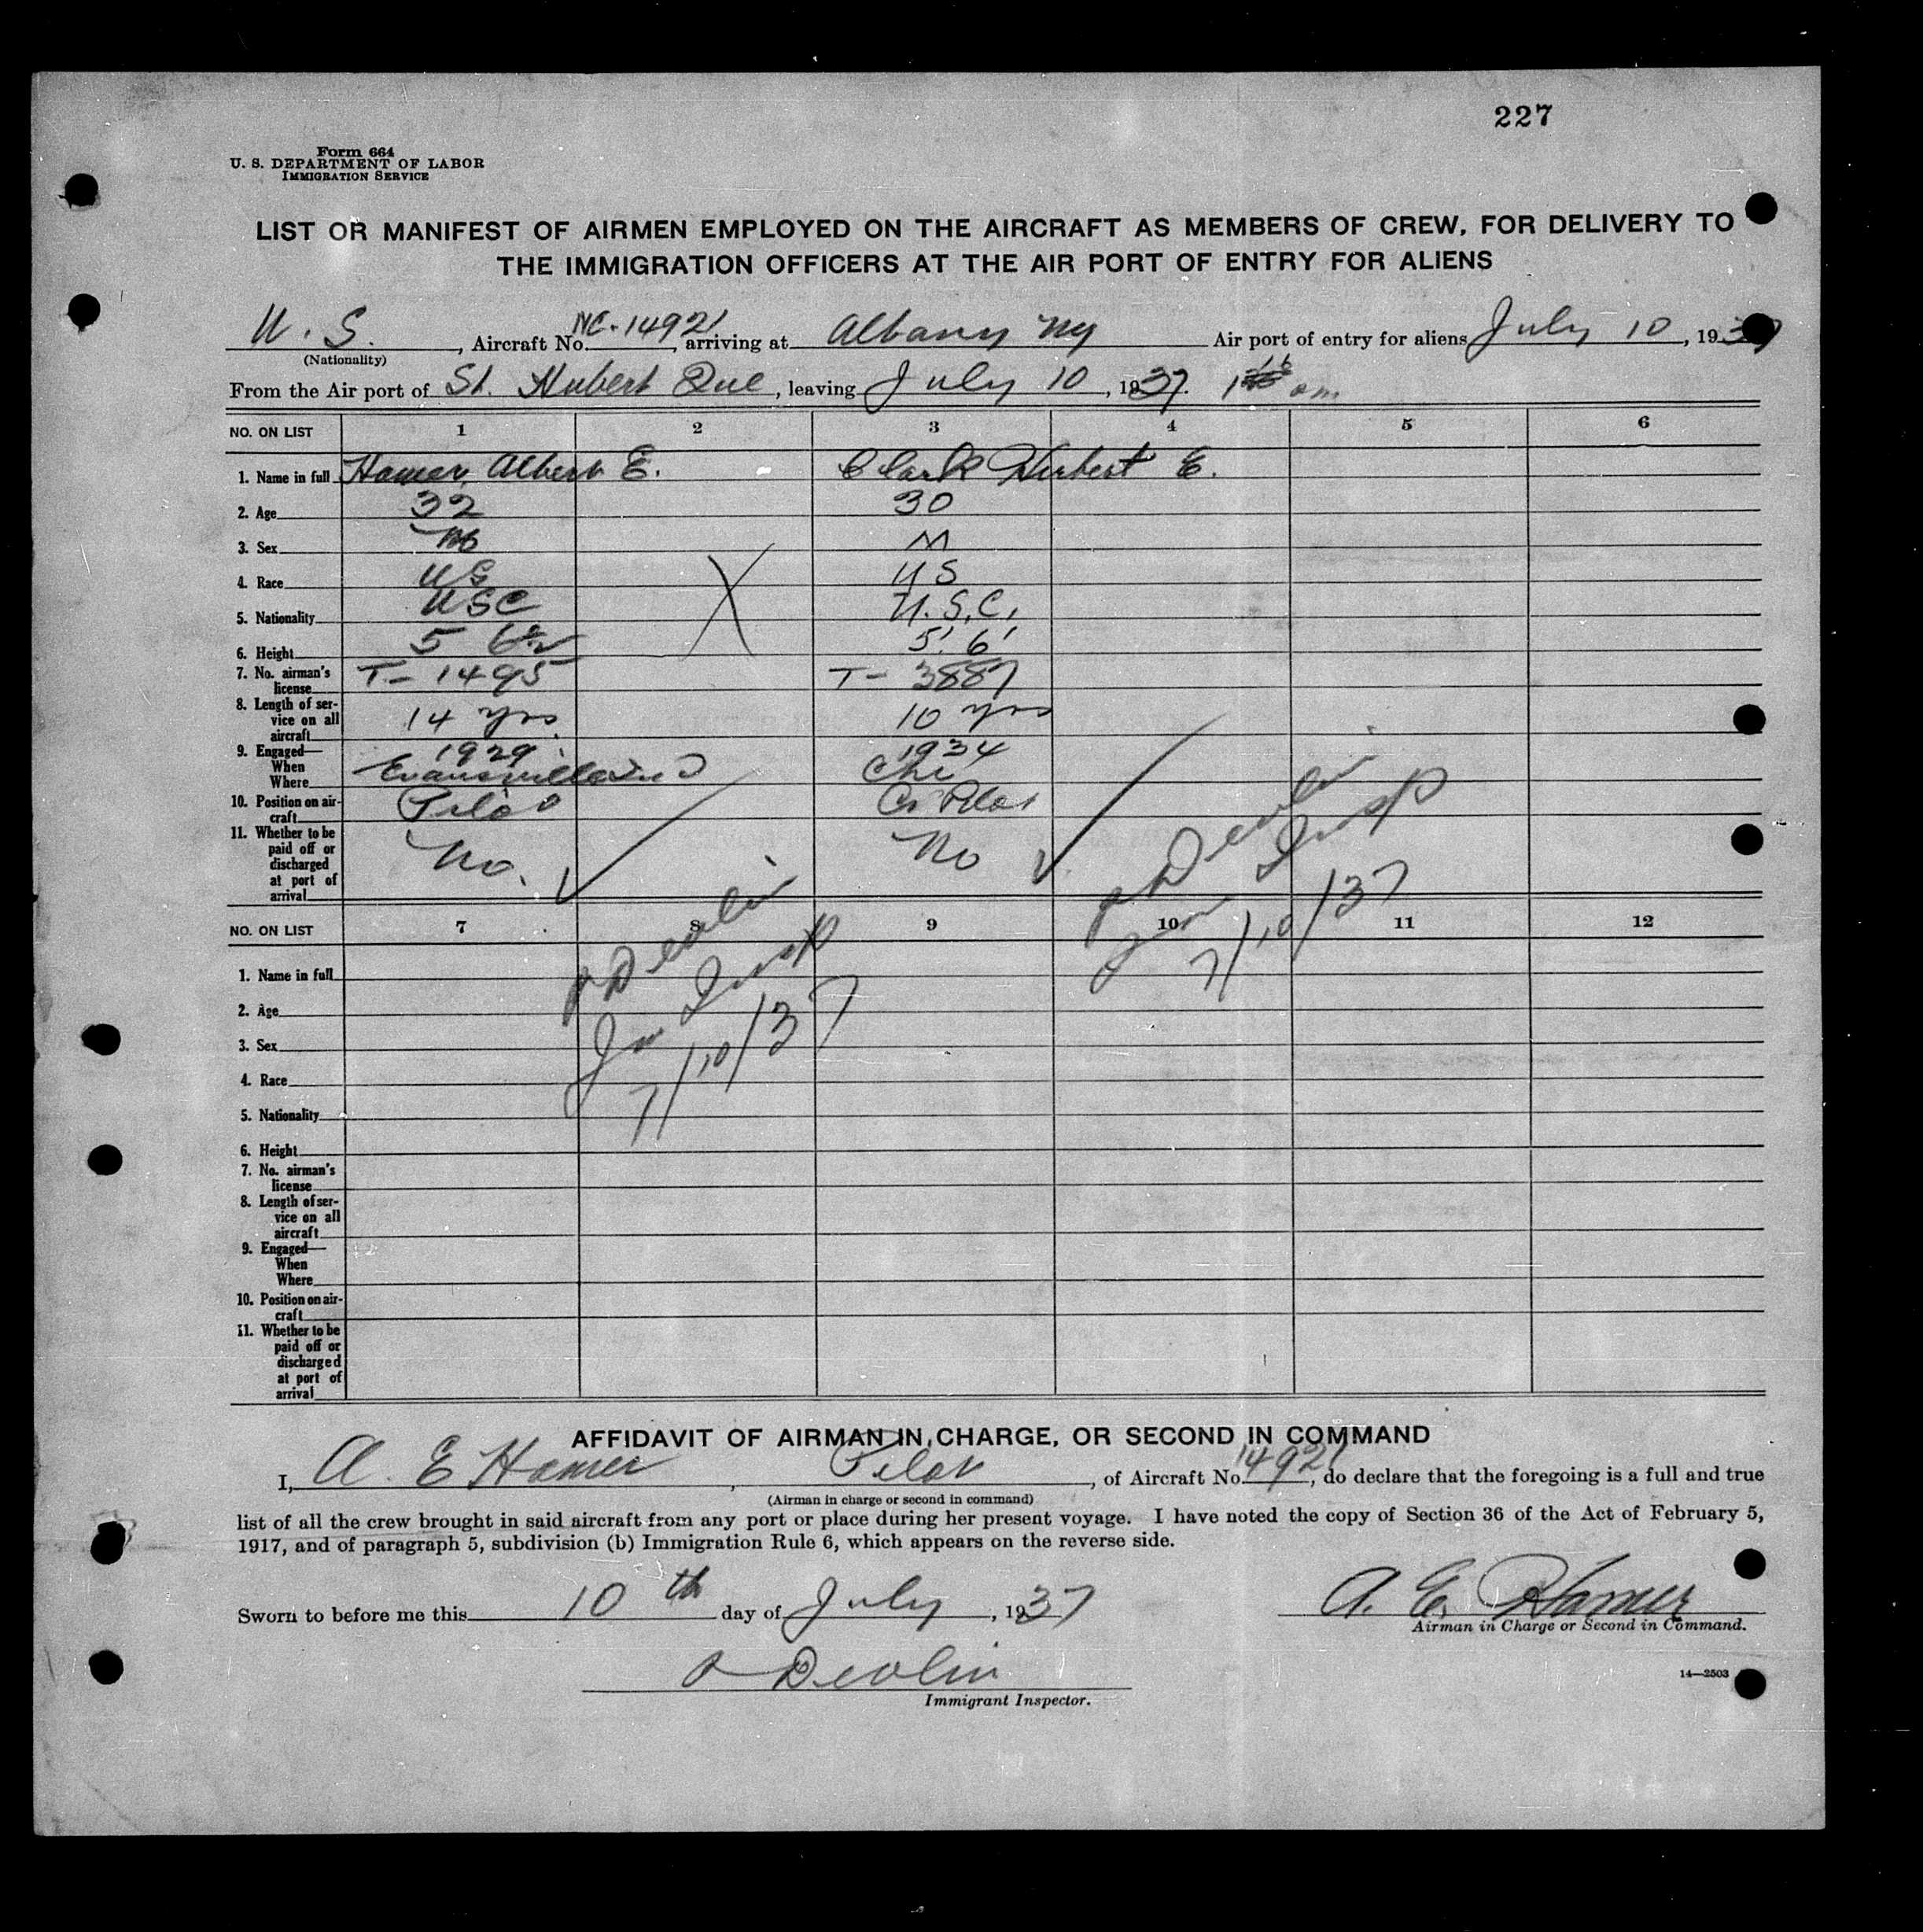 227
Form 664
U. S. DEPARTMENT OF LABOR
IMMIGRATION SERVICE
LIST OR MANIFEST OF AIRMEN EMPLOYED ON THE AIRCRAFT AS MEMBERS OF CREW, FOR DELIVERY TO
THE IMMIGRATION OFFICERS AT THE AIR PORT OF ENTRY FOR ALIENS
U. S., Aircraft No. NC-14921, arriving at Albany NY Air port of entry for aliens July 10, 1937
(Nationality)
From the Air port of St. Hubert Que, leaving July 10, 1937.
NO. ON LIST 1 2 3 4 5 6
1. Name in full Hamer, Albert E. Clark Herbert E.
2. Age 32 30
3. Sex M M
4. Race US US
5. Nationality USC U.S.C.
6. Height 5 6½ 5' 6'
7. No. airman's license T-1495 T-3887
8. Length of service on all aircraft 14 yrs. 10 yrs
9. Engaged— When 1929 1934
Where Evansville Ind Chi
10. Position on aircraft Pilot Co Pilot
11. Whether to be paid off or discharged at port of arrival No. No
P Devlin
Im Insp
7/10/37
P Devlin
Im Insp
7/10/37
NO. ON LIST 7 8 9 10 11 12
1. Name in full
2. Age
3. Sex
4. Race
5. Nationality
6. Height
7. No. airman's license
8. Length of service on all aircraft
9. Engaged— When
Where
10. Position on aircraft
11. Whether to be paid off or discharged at port of arrival
AFFIDAVIT OF AIRMAN IN CHARGE, OR SECOND IN COMMAND
I, A. E Hamer, Pilot, of Aircraft No. 14921, do declare that the foregoing is a full and true
(Airman in charge or second in command)
list of all the crew brought in said aircraft from any port or place during her present voyage. I have noted the copy of Section 36 of the Act of February 5,
1917, and of paragraph 5, subdivision (b) Immigration Rule 6, which appears on the reverse side.
Sworn to before me this 10th day of July, 1937
A. E. Hamer
Airman in Charge or Second in Command.
P Devlin
Immigrant Inspector.
14—2503